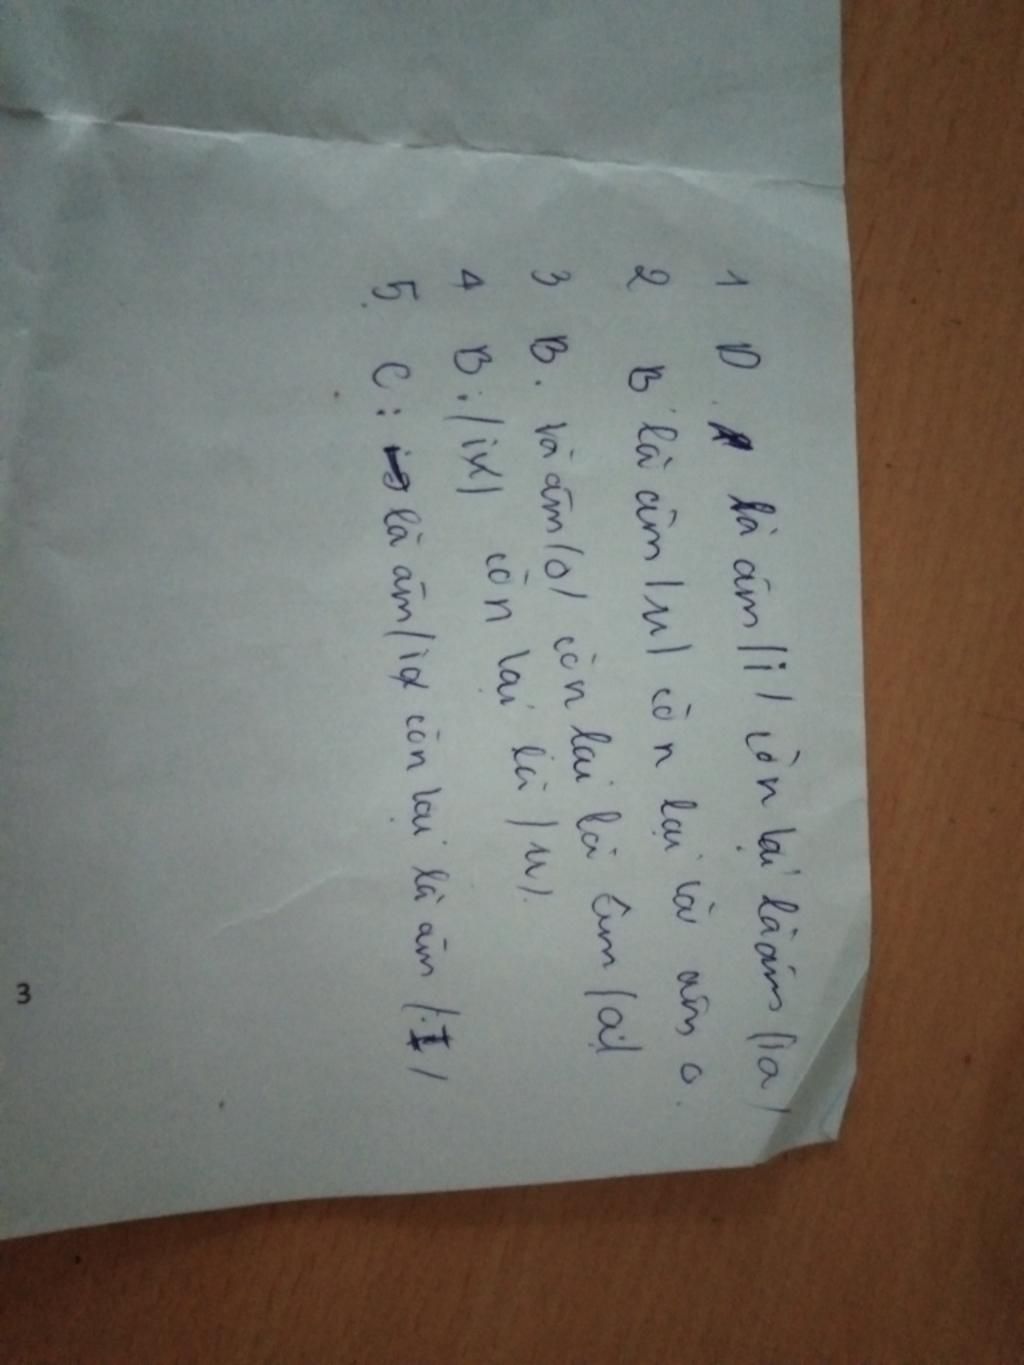 1 D. là âm /i/ còn lại là âm /ia/
2 B là âm /u/ còn lại là âm o.
3 B. là âm /o/ còn lại là âm /a/
4 B: /ix/ còn lại là /u/.
5 C: là âm /ia còn lại là âm /I/
3